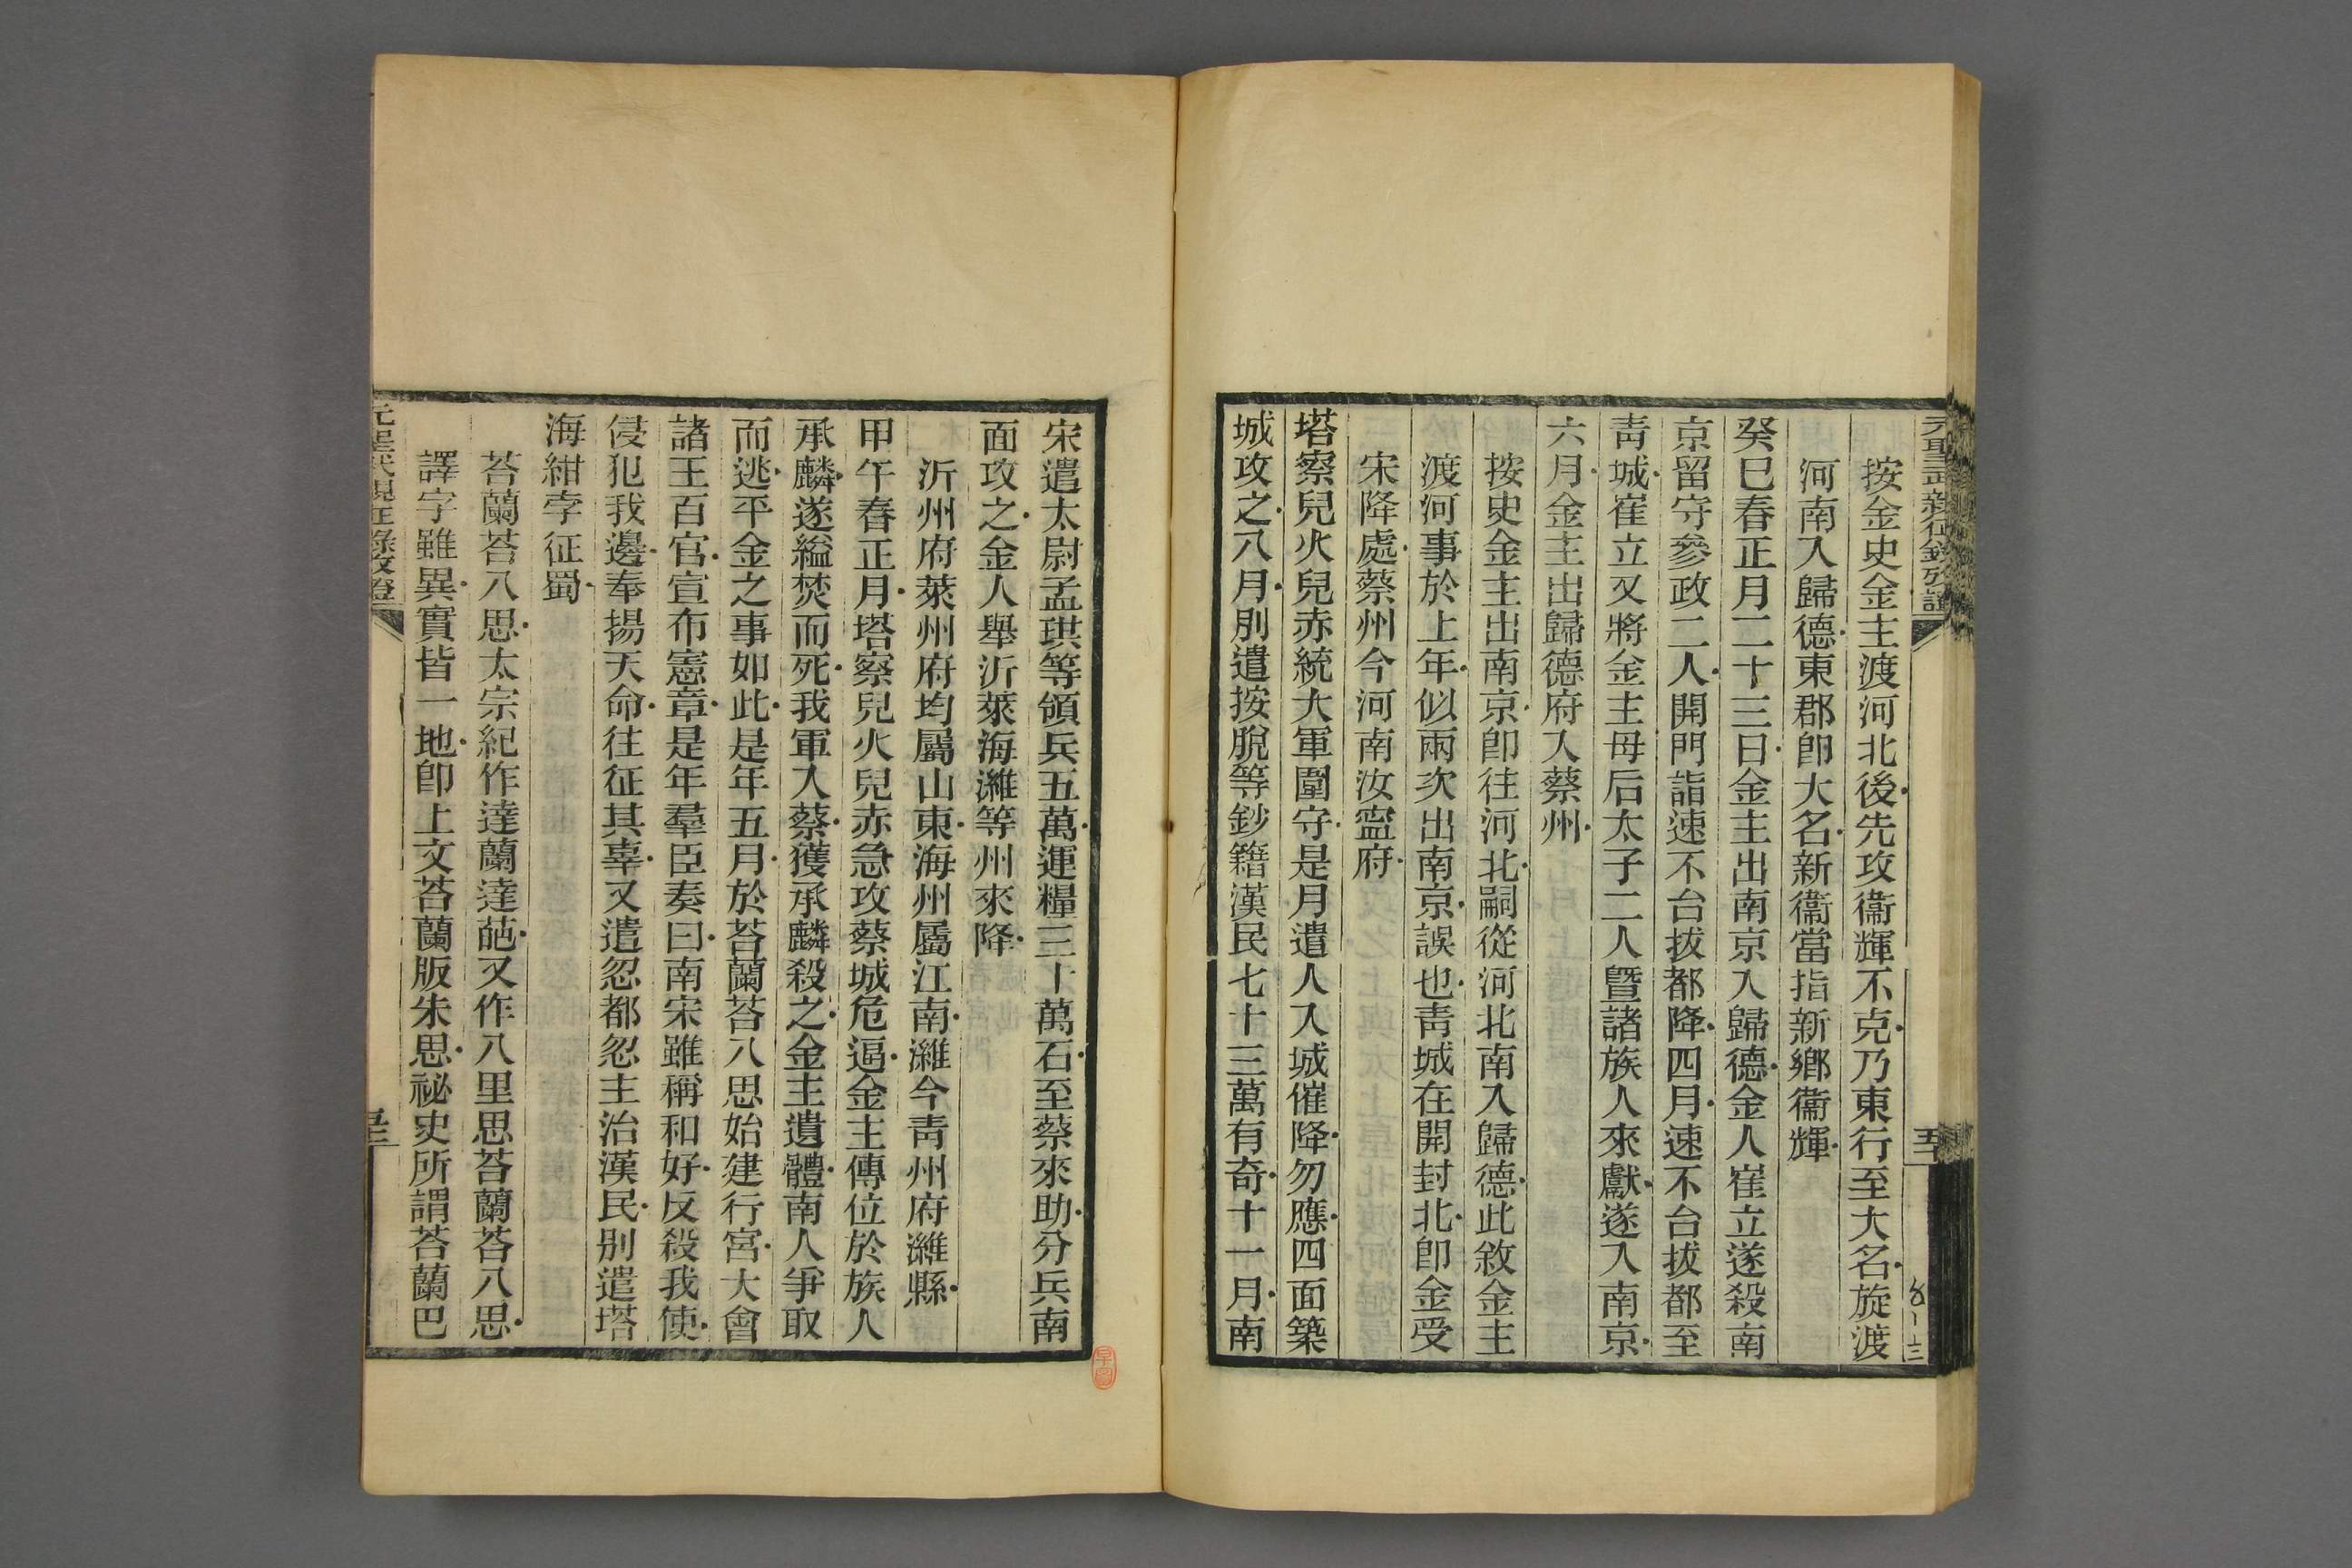 元聖武親征錄攷證
五十一
按金史金主渡河北後先攻衞輝不克乃東行至大名旋渡
河南入歸德東郡卽大名新衞當指新鄉衞輝
癸巳春正月二十三日金主出南京入歸德金人崔立遂殺南
京留守參政二人開門詣速不台拔都降四月速不台拔都至
靑城崔立又將金主母后太子二人曁諸族人來獻遂入南京
六月金主出歸德府入蔡州
按史金主出南京卽往河北嗣從河北南入歸德此敘金主
渡河事於上年似兩次出南京誤也靑城在開封北卽金受
宋降處蔡州今河南汝寧府
塔察兒火兒赤統大軍圍守是月遣人入城催降勿應四面築
城攻之八月別遣按脫等鈔籍漢民七十三萬有奇十一月南
宋遣太尉孟珙等領兵五萬運糧三十萬石至蔡來助分兵南
面攻之金人舉沂萊海濰等州來降
沂州府萊州府均屬山東海州屬江南濰今靑州府濰縣
甲午春正月塔察兒火兒赤急攻蔡城危逼金主傳位於族人
承麟遂縊焚而死我軍入蔡獲承麟殺之金主遺體南人爭取
而逃平金之事如此是年五月於荅蘭荅八思始建行宮大會
諸王百官宣布憲章是年羣臣奏曰南宋雖稱和好反殺我使
侵犯我邊奉揚天命往征其辜又遣忽都忽主治漢民別遣塔
海紺孛征蜀
荅蘭荅八思太宗紀作達蘭達葩又作八里思荅蘭荅八思
譯字雖異實皆一地卽上文荅蘭版朱思祕史所謂荅蘭巴